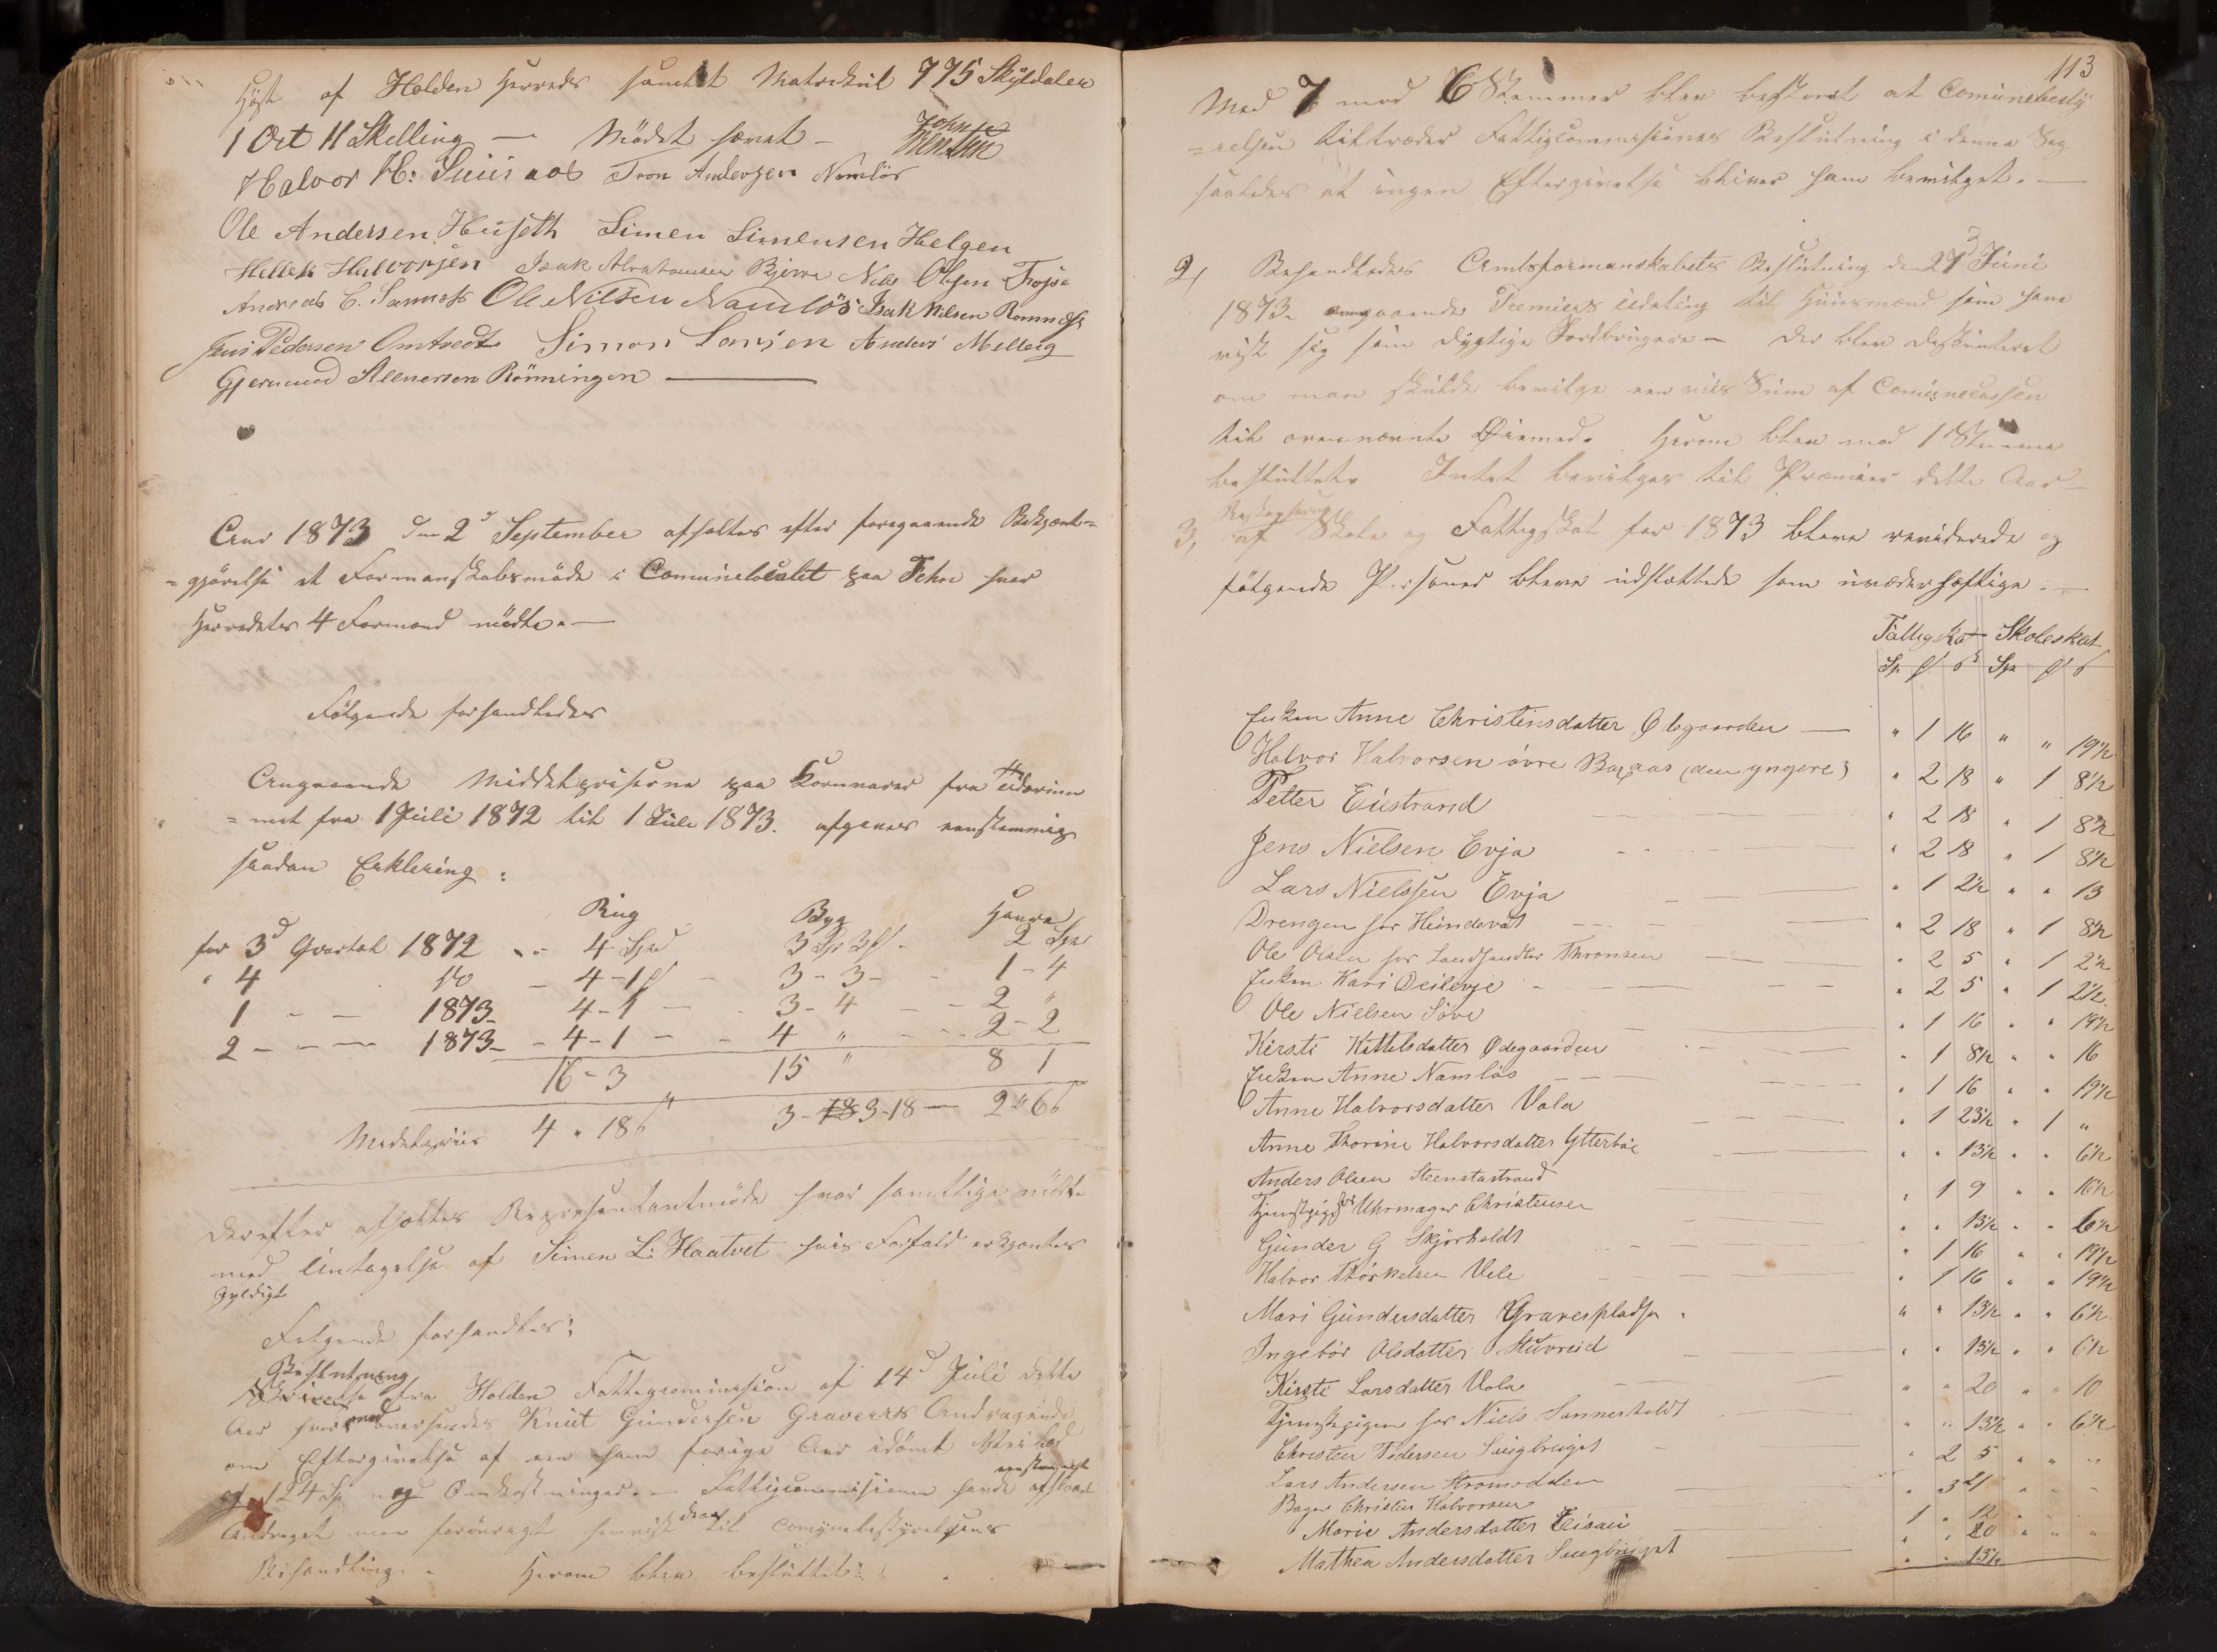 Høst af Holden Herreds samlet Matrikul 775 Skyldaler
1 Ort 11 Skelling — Mødet hævet –
John
Halvor H: Suusaas Tron Andersen Namløs
Ole Andersen Huseth Simen Simensen Helgen
Hellek Halvorsen Isak Abrahamsen Bjerva Nils Olsen
Andreas C. Ole Nilsen Namløs Isak Nilsen Romnæs
Jens Pedersen Omtvedt Simon Anders Melteig
Gjermund Steenersen Rønningen —
Aar 1873 den 2d September afholtes efter foregaaende Bekjent=
=gjørelse et Formanskabsmøde i Comunelocalet paa Fehn hvor
Herredets 4 Formænd mødte. —
Følgende forhandledes
Angaaende Middelpriserne paa Kornvarer fra
=met fra 1 Juli 1872 til 1 Juli 1873. afgaves eenstemmig
saadan Erklering :
Rug Byg Havre
for 3d Qvartal 1872 4 Spd 3 Sp 3 ß - 2 Spd
" 4 do - 4-1 ß - 3-3- - 1-4
1 - - 1873 4-1 - 3-4 - 2 "
2 - - - 1873 - 4-1 - - 4 " - - 2-2
16-3 15 " 8 1
Medelpriis 4 " 18 ß 3-18 3-18 — 2 " 6 ß
Derefter afholtes Representantmøde hvor samtlige mødte
med Untagelse af Simen L: Haatvet hvis Forfald erkjentes
Gyldigt
Følgende forhandles:
Beslutning
fra Holden Fattigcommission af 14d Juli dette
Aar hvormed oversendes Knut Gundersen Graverrs Andragende
om Eftergivelse af een ham forige Aar idømt
af 124 Sp og Omkostninger. — Fattigcommisionen havde eenstemmigt afslaaet
Andraget men forøvrigt henvist den til comunebestyrelsens
Behandling. - Herom blev besluttet:
113
Med 7 mod 6 Stemmer blev bestemt at Comunebesty
=relsen tiltræder Fattigcommissionens Beslutning i denne Sag
saaledes at ingen Eftergivelse bliver ham bevilget. —
2, Behandledes Amtsformanskabets Beslutning den 21d Juni
1873 angaaende Premiers udeling til Huusmænd som have
vist sig som dygtige Jordbrugere — Der blev
om man skulde bevilge een vis Sum af Comunecassen
til ovennevnte Øiemed. Herom blev med 1 Stemme
besluttet Intet bevilges til Præmier dette Aar —
3, af Skole og Fattigskat for 1873 bleve reviderede og
følgende Personer bleve udslettede som uvederhæftige : —
Fattigskat Skoleskat
Sp ß Sp ß
Enken Anne Christensdatter Ødegaarden — " 1 16 " " 19½
Halvor Halvorsen øvre Baraas (den yngere) " 2 18 " 1 8½
Petter Eiestrand " 2 18 " 1 8½
Jens Nielsen Evja " 2 18 " 1 8½
Lars Nielssen Evja " 1 2½ " " 13
Drengen hos Heindevat " 2 18 " 1 8½
Ole Olsen hos Landhandler Thronsen " 2 5 " 1 2½
Enken Kari Deilevje " 2 5 " 1 2½
Ole Nielsen Søve " 1 16 " " 19½
Kirsti Kittelsdatter Ødegaarden " 1 8½ " " 16
Enken Anne Namløs " 1 16 " " 19½
Anne Halvorsdatter Vala " 1 23½ " 1 "
Anne Thorine Halvorsdatter Ytterbøe " " 13½ " " 6½
Anders Olsen Steenstastrand " 1 9 " " 16½
Tjenstpige hos Uhrmager Christensen " " 13½ " " 6½
Gunder G Skjørholdt " 1 16 " " 19½
Halvor Thorkelsen Vele " 1 16 " " 19½
Mari Gundersdatter Gravespladsen " " 13½ " " 6½
Ingebór Olsdatter Stuvreid " " 13½ " " 6½
Kirsti Larsdatter Vola " " 20 " " 10
Tjenstepigen hos Niels Sannerholdt " " 13½ " " 6½
Christen Pedersen " 2 5 " " "
Lars Andersen Strømodden " 3 21 " " "
Bager Christen Halvorsen 1 " 12 " "
Marie Andersdatter Teisau " " 20 " " "
Mathea Andersdatter " " 13½